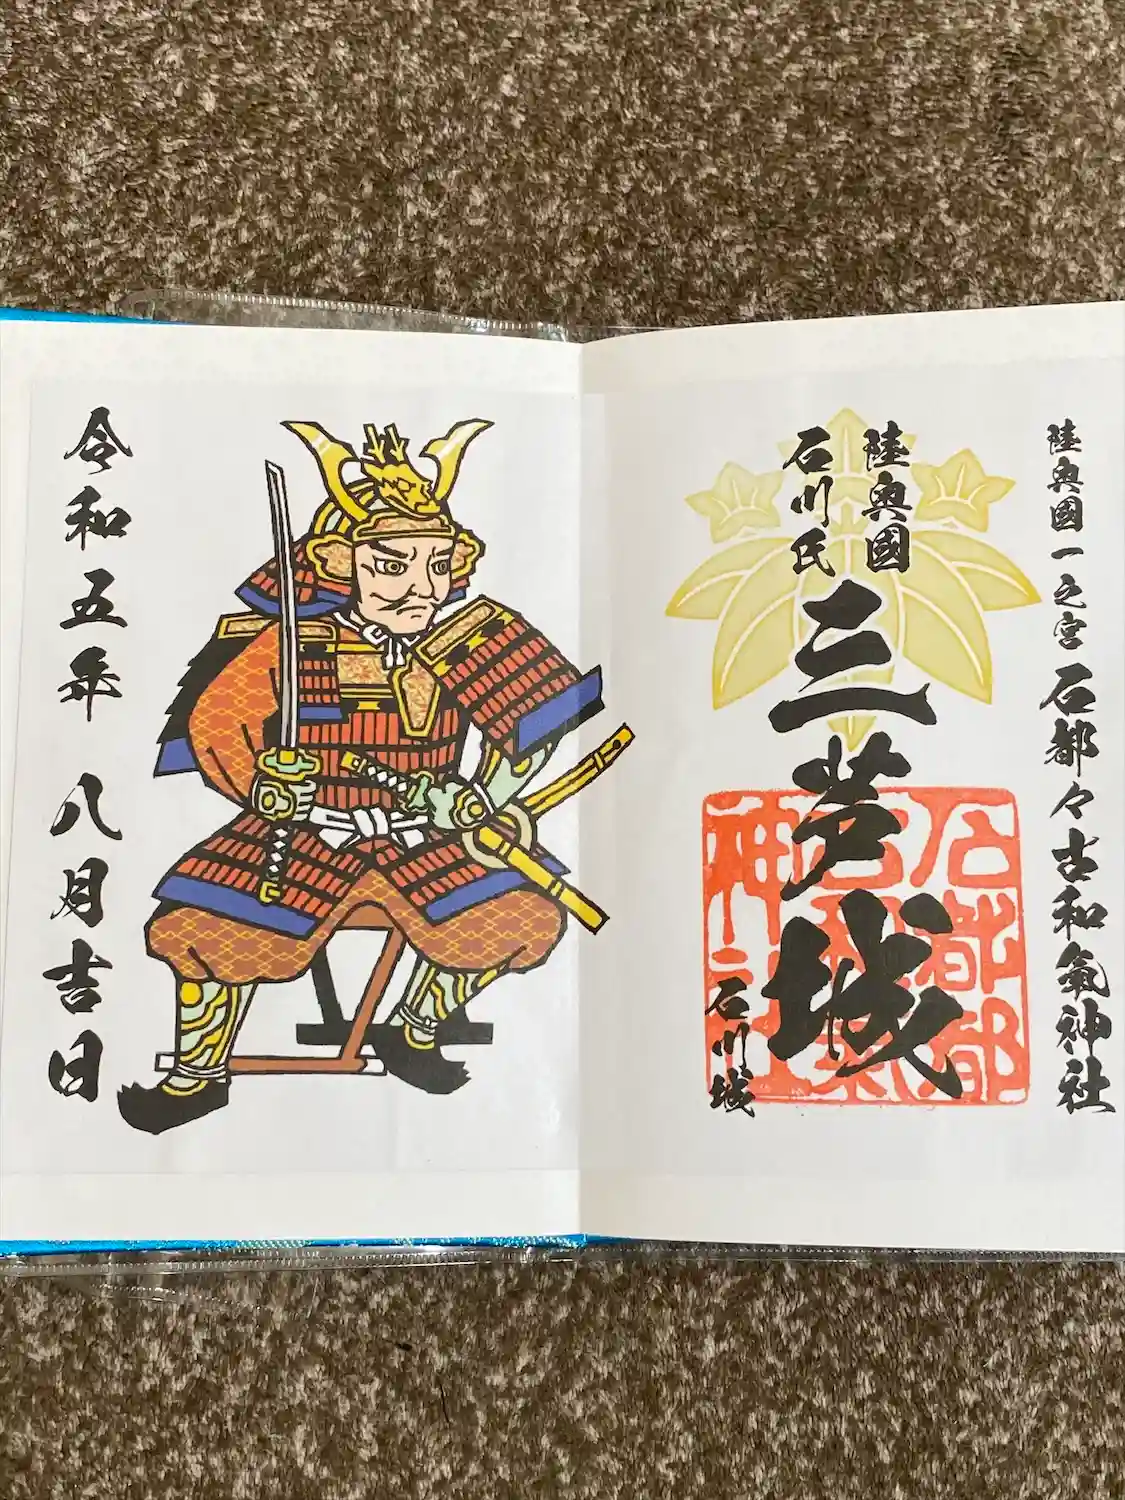 陸奥國一之宮 石都々古和氣神社
陸奥國
石川氏
三芦城
石川城
石都都
古和氣
神社
令和五年 八月吉日